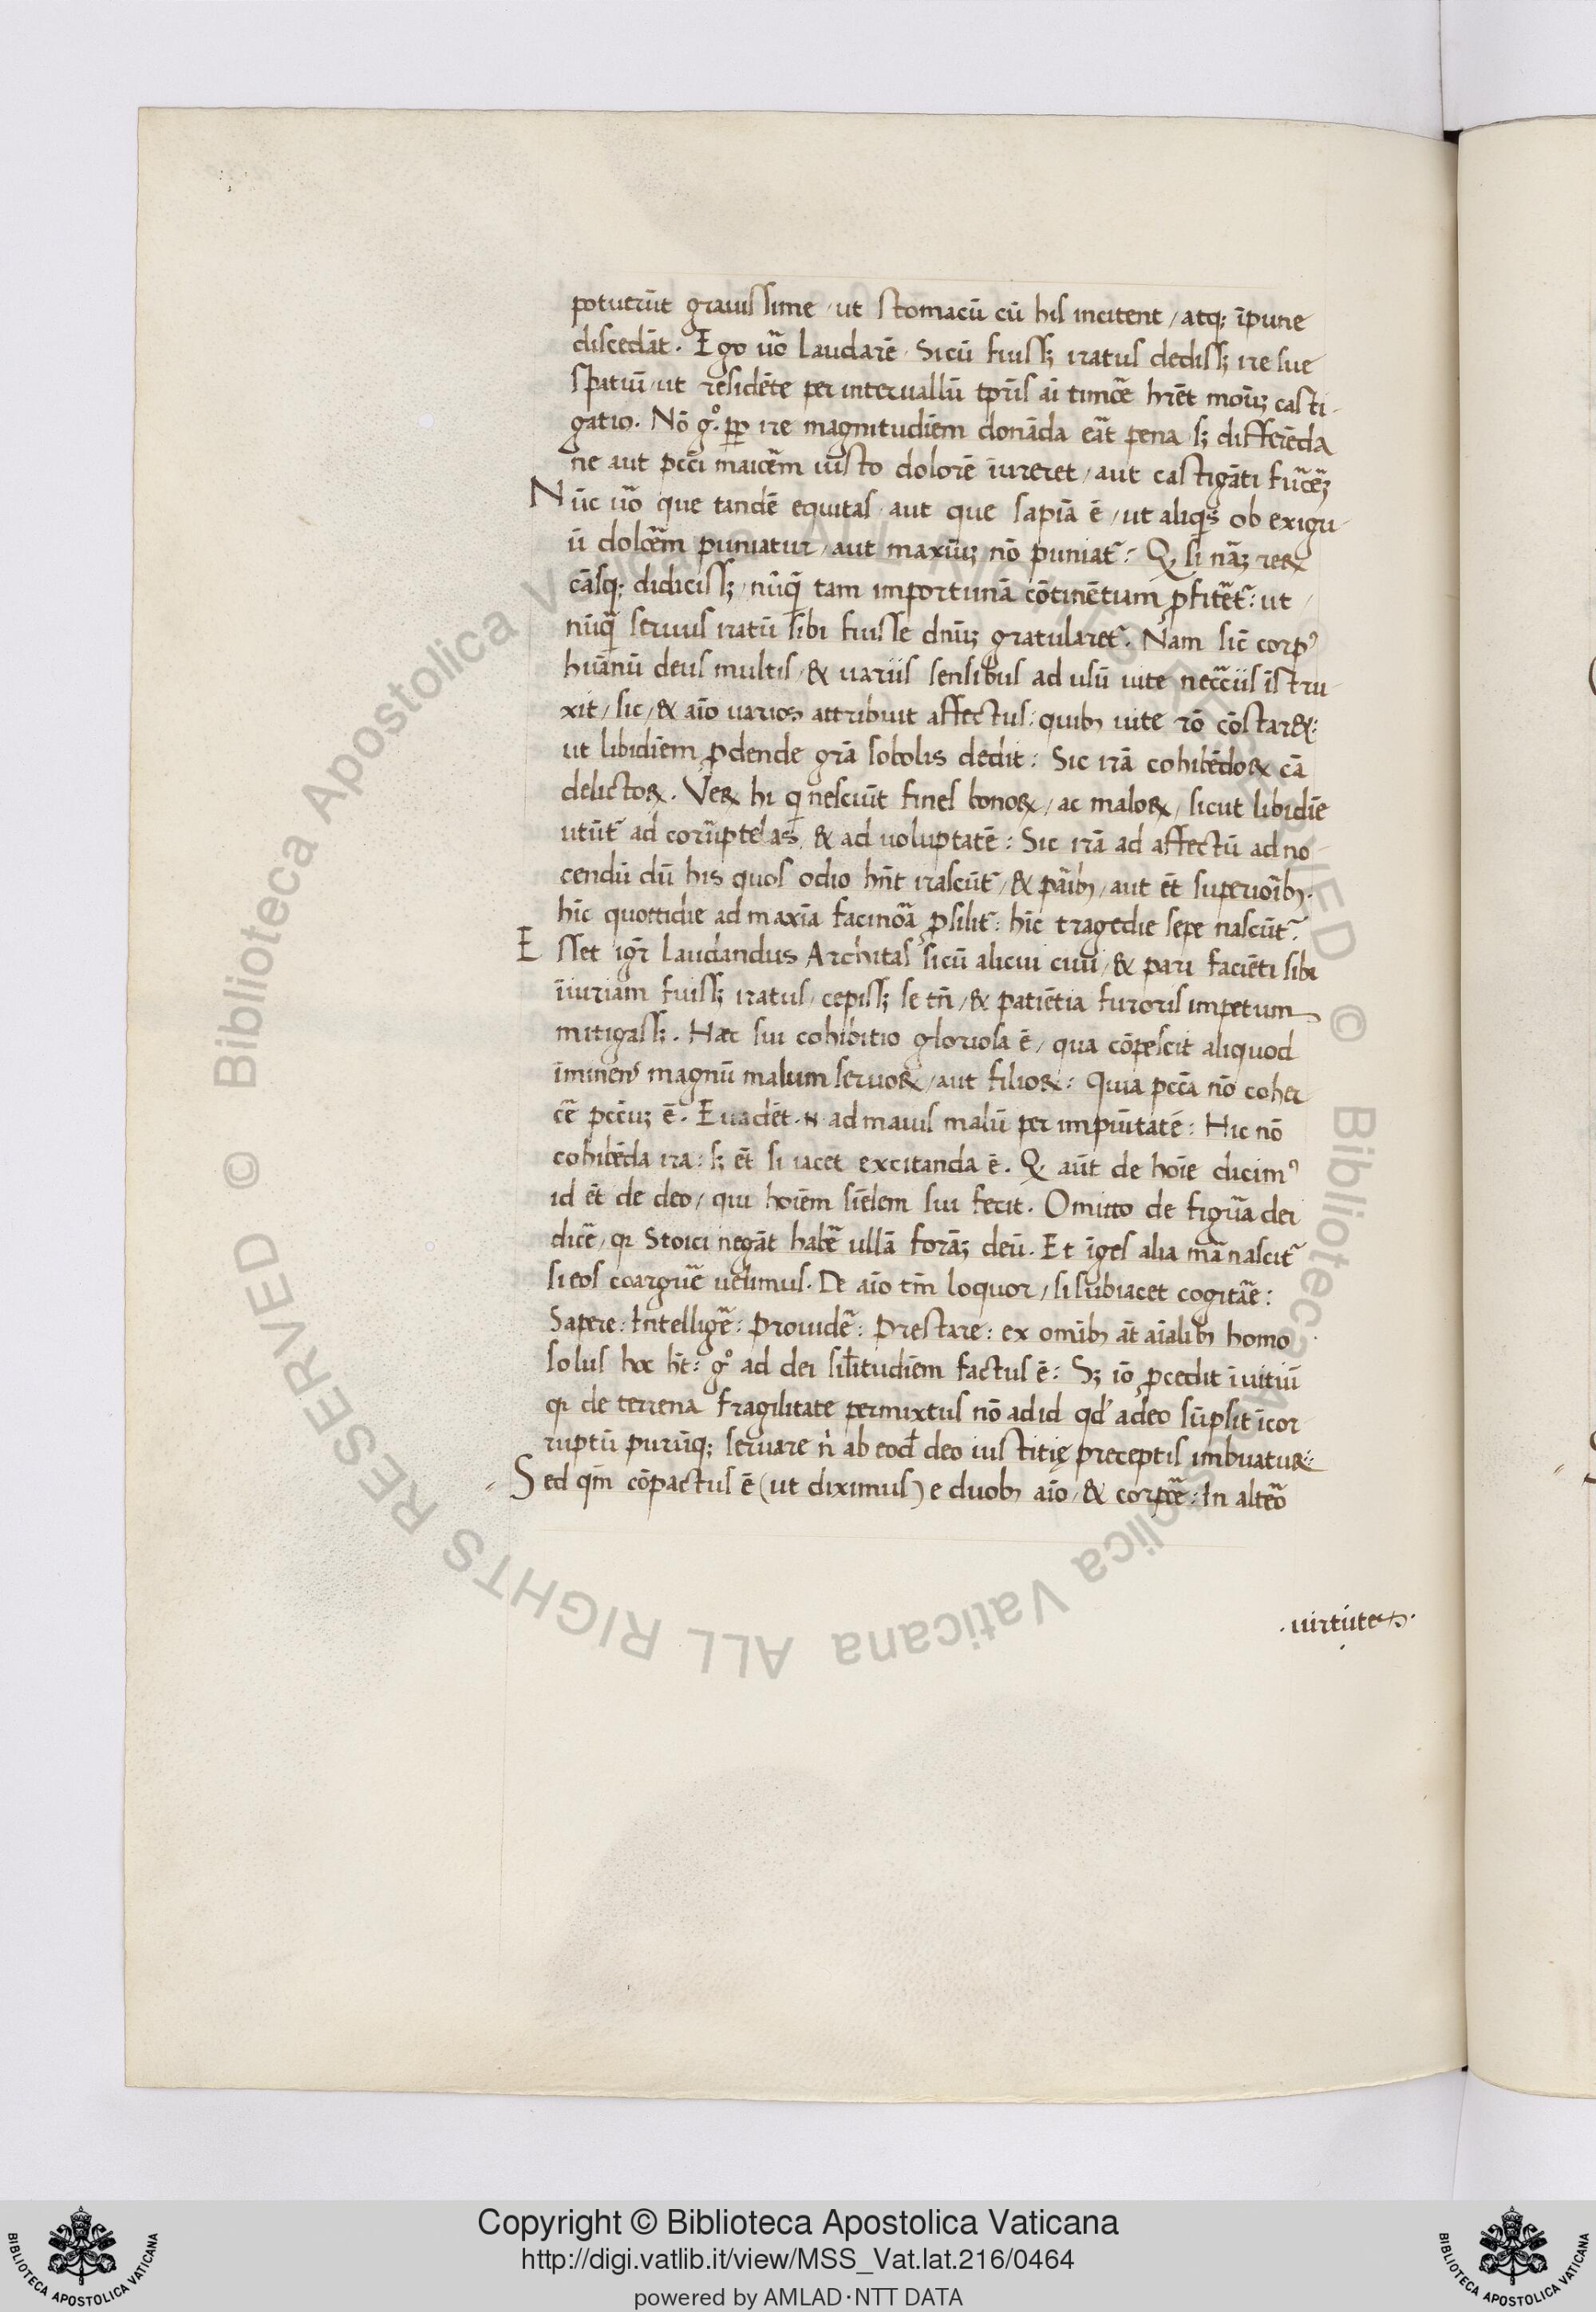 potuerūt grauissime, ut stomacū cū his incitent, atq; īpune
discedāt. Ego u̅o laudarē. Sicū fuiss; iratus dediss; ire sue
spatiū, ut residēte per interuallū tp̄ris ai timo̅e hrēt modū; casti-
gatio. Nō g°. pp̄ ire magnitudiēm donāda eāt pena s; differēda
ne aut pcc̄i maio̅em iusto dolorē iureret, aut castigāti fūcē;
Nūc u̅o que tandē equitas, aut que sapiā ē, ut aliq̇s ob exigu-
ū dolo̅em puniatur, aut maxūz nō puniat̄: Q, si nāz reꝝ
cāsq; didiciss;, nūq̄ tam importunā cōtinētiam ꝓfitēt̄: ut
nūq̄ seruus iratū sibi fuisse dnūz gratularet̄. Nam sic̄ corpꝰ
huānū deus multis, & uariis sensibus ad usū uite necc̄iis īstru-
xit, sic, & aīo uarios attribuit affectus: quibꝫ uite rō cōstaret:
ut libidiēm ꝓdende grā sobolis dedit: Sic irā cohibēdoꝝ cā
delictoꝝ. Veꝝ hi q nesciūt fines bonoꝝ, ac maloꝝ, sicut libidiē
utūt̄ ad corūptelas, & ad uoluptatē: Sic irā ad affectū ad no-
cendū dū his quos odio hn̄t irascūt̄, & pāibꝫ, aut ēt superioībꝫ.
hīc quottidie ad maxīa facinōa ꝓsilit̄: hīc tragedie sepe nascūt̄.
Esset igr̄ laudandus Architas sicū alicui ciui, & pari faciēti sibi
īiuriam fuiss; iratus, cepiss; se tn̄, & patiētia furoris impetum
mitigass;. Hæc sui cohibitio gloriosa ē, qua cōpescit aliquod
īminens magnū malum seruoꝝ, aut filioꝝ: Quia pccā nō coher
cē pccūz ē. Euadēt .n. ad maius malū per impūitatē: Hic nō
cohibēda ira: s; ēt si iacet excitanda ē. Q, aūt de hoīe dicimꝰ
id ēt de deo, qui hoiēm siēlem sui fecit. Omitto de figūa dei
dicē, qꝛ Stoici negāt habē ullā forāz deū. Et īges alia mā nascit̄
si eos coarguē uelimus. De aīo tm̄ loquor, si subiacet cogitāe:
Sapere: Intelligē: Prouidē: Prestare: ex omībꝫ āt aīalibꝫ homo
solus hoc ht̄: g° ad dei siłitudiēm factus ē: S; iō ꝓcedit ī uitiū
qꝛ de terrena fragilitate permixtus nō ad id qd' a deo sūpsit īcor
ruptū purūq; seruare n̄ ab eod̄ deo iustitię preceptis imbuatur:
Sed qm̄ cōpactus ē (ut diximus) e duobꝫ aīo, & corpo̅e: In alteō
.uirtutes.
Copyright © Biblioteca Apostolica Vaticana
http://digi.vatlib.it/view/MSS_Vat.lat.216/0464
powered by AMLAD·NTT DATA